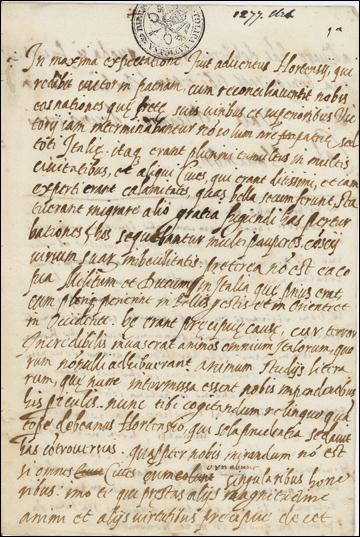 1277. Urb.
1a
In maxima expectatione fuit adventus Hortensij, qui
redibit victor in patriam, cum reconciliaverit nobis
eas nationes quę suis viribus et superioribus
iam nobis sed
toti Italię. itaq. erant plurimi tumultus in multis
civitatibus, et aliqui Cives, qui erant ditissimi, et iam
experti erant calamitates, quas bella secum ferunt,
tuerant migrare alio gratia fugiendi has pertur
bationes, et hos sequebantur multi pauperes,
virium suar. imbecillitatis. pręterea nõ est ea co
pia Militum et Ducum in Italia que prius erat,
cum penę in et in Oriente et
in Occidente. hę erant pręcipuę causę, cur terror
incredibilis invaserat animos omnium Italorum, quo
rum nonulli animum studijs littera
rum, quę nunc intermissa essent nobis impendentibus
his periculis. nunc tibi cogitandum relinquo quã
tope debeamus Hortensio, qui sola prudentia sedavit
has cõtroversias. quapropter nobis mirandum nõ est
si omnes Cives singularibus hono
ribus. imo et qui pręstas alijs magnitudine
animi et alijs virtutibus pręcipue decet